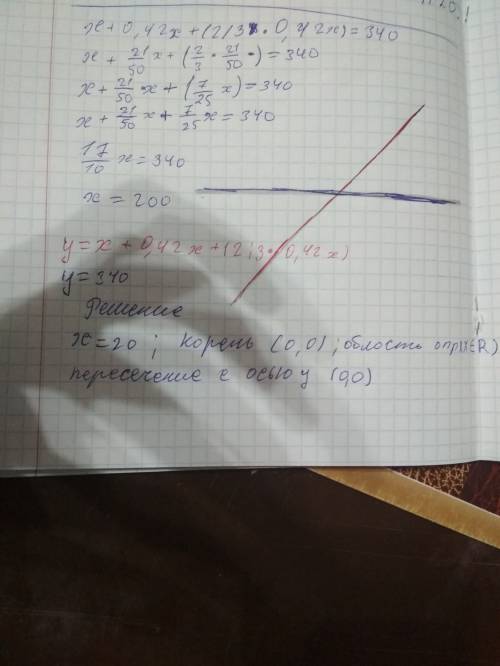 x + 0,42x + (2/3 · 0,42x) = 340
x + 21/50 x + (2/3 · 21/50 ·) = 340
x + 21/50 · x + (7/25 x) = 340
x + 21/50 x + 7/25 x = 340
17/10 x = 340
x = 200
y = x + 0,42x + (2 ; 3 · 0,42x)
y = 340
Решение
x = 20 ; корель (0,0) ; область опр(x∈R)
пересечение с осью y (0,0)